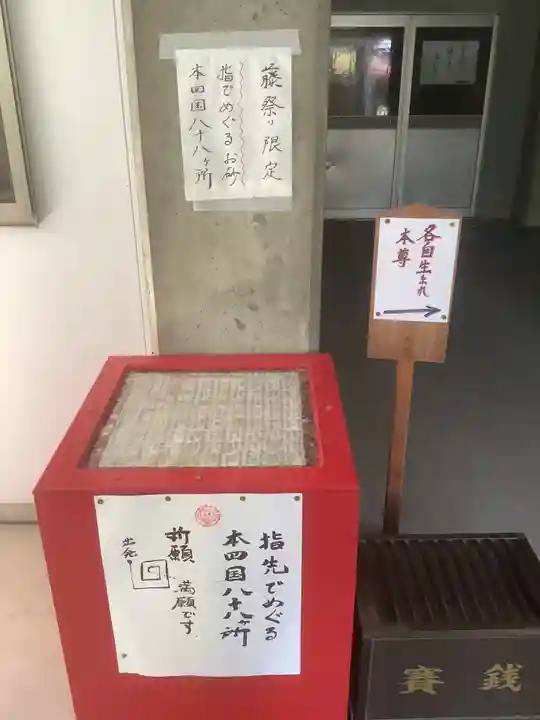 藤祭り限定
指でめぐるお砂
本四国八十八ヶ所
各自生まれ
本尊
指先でめぐる
本四国八十八ヶ所
祈願
満願です
出発
賽銭